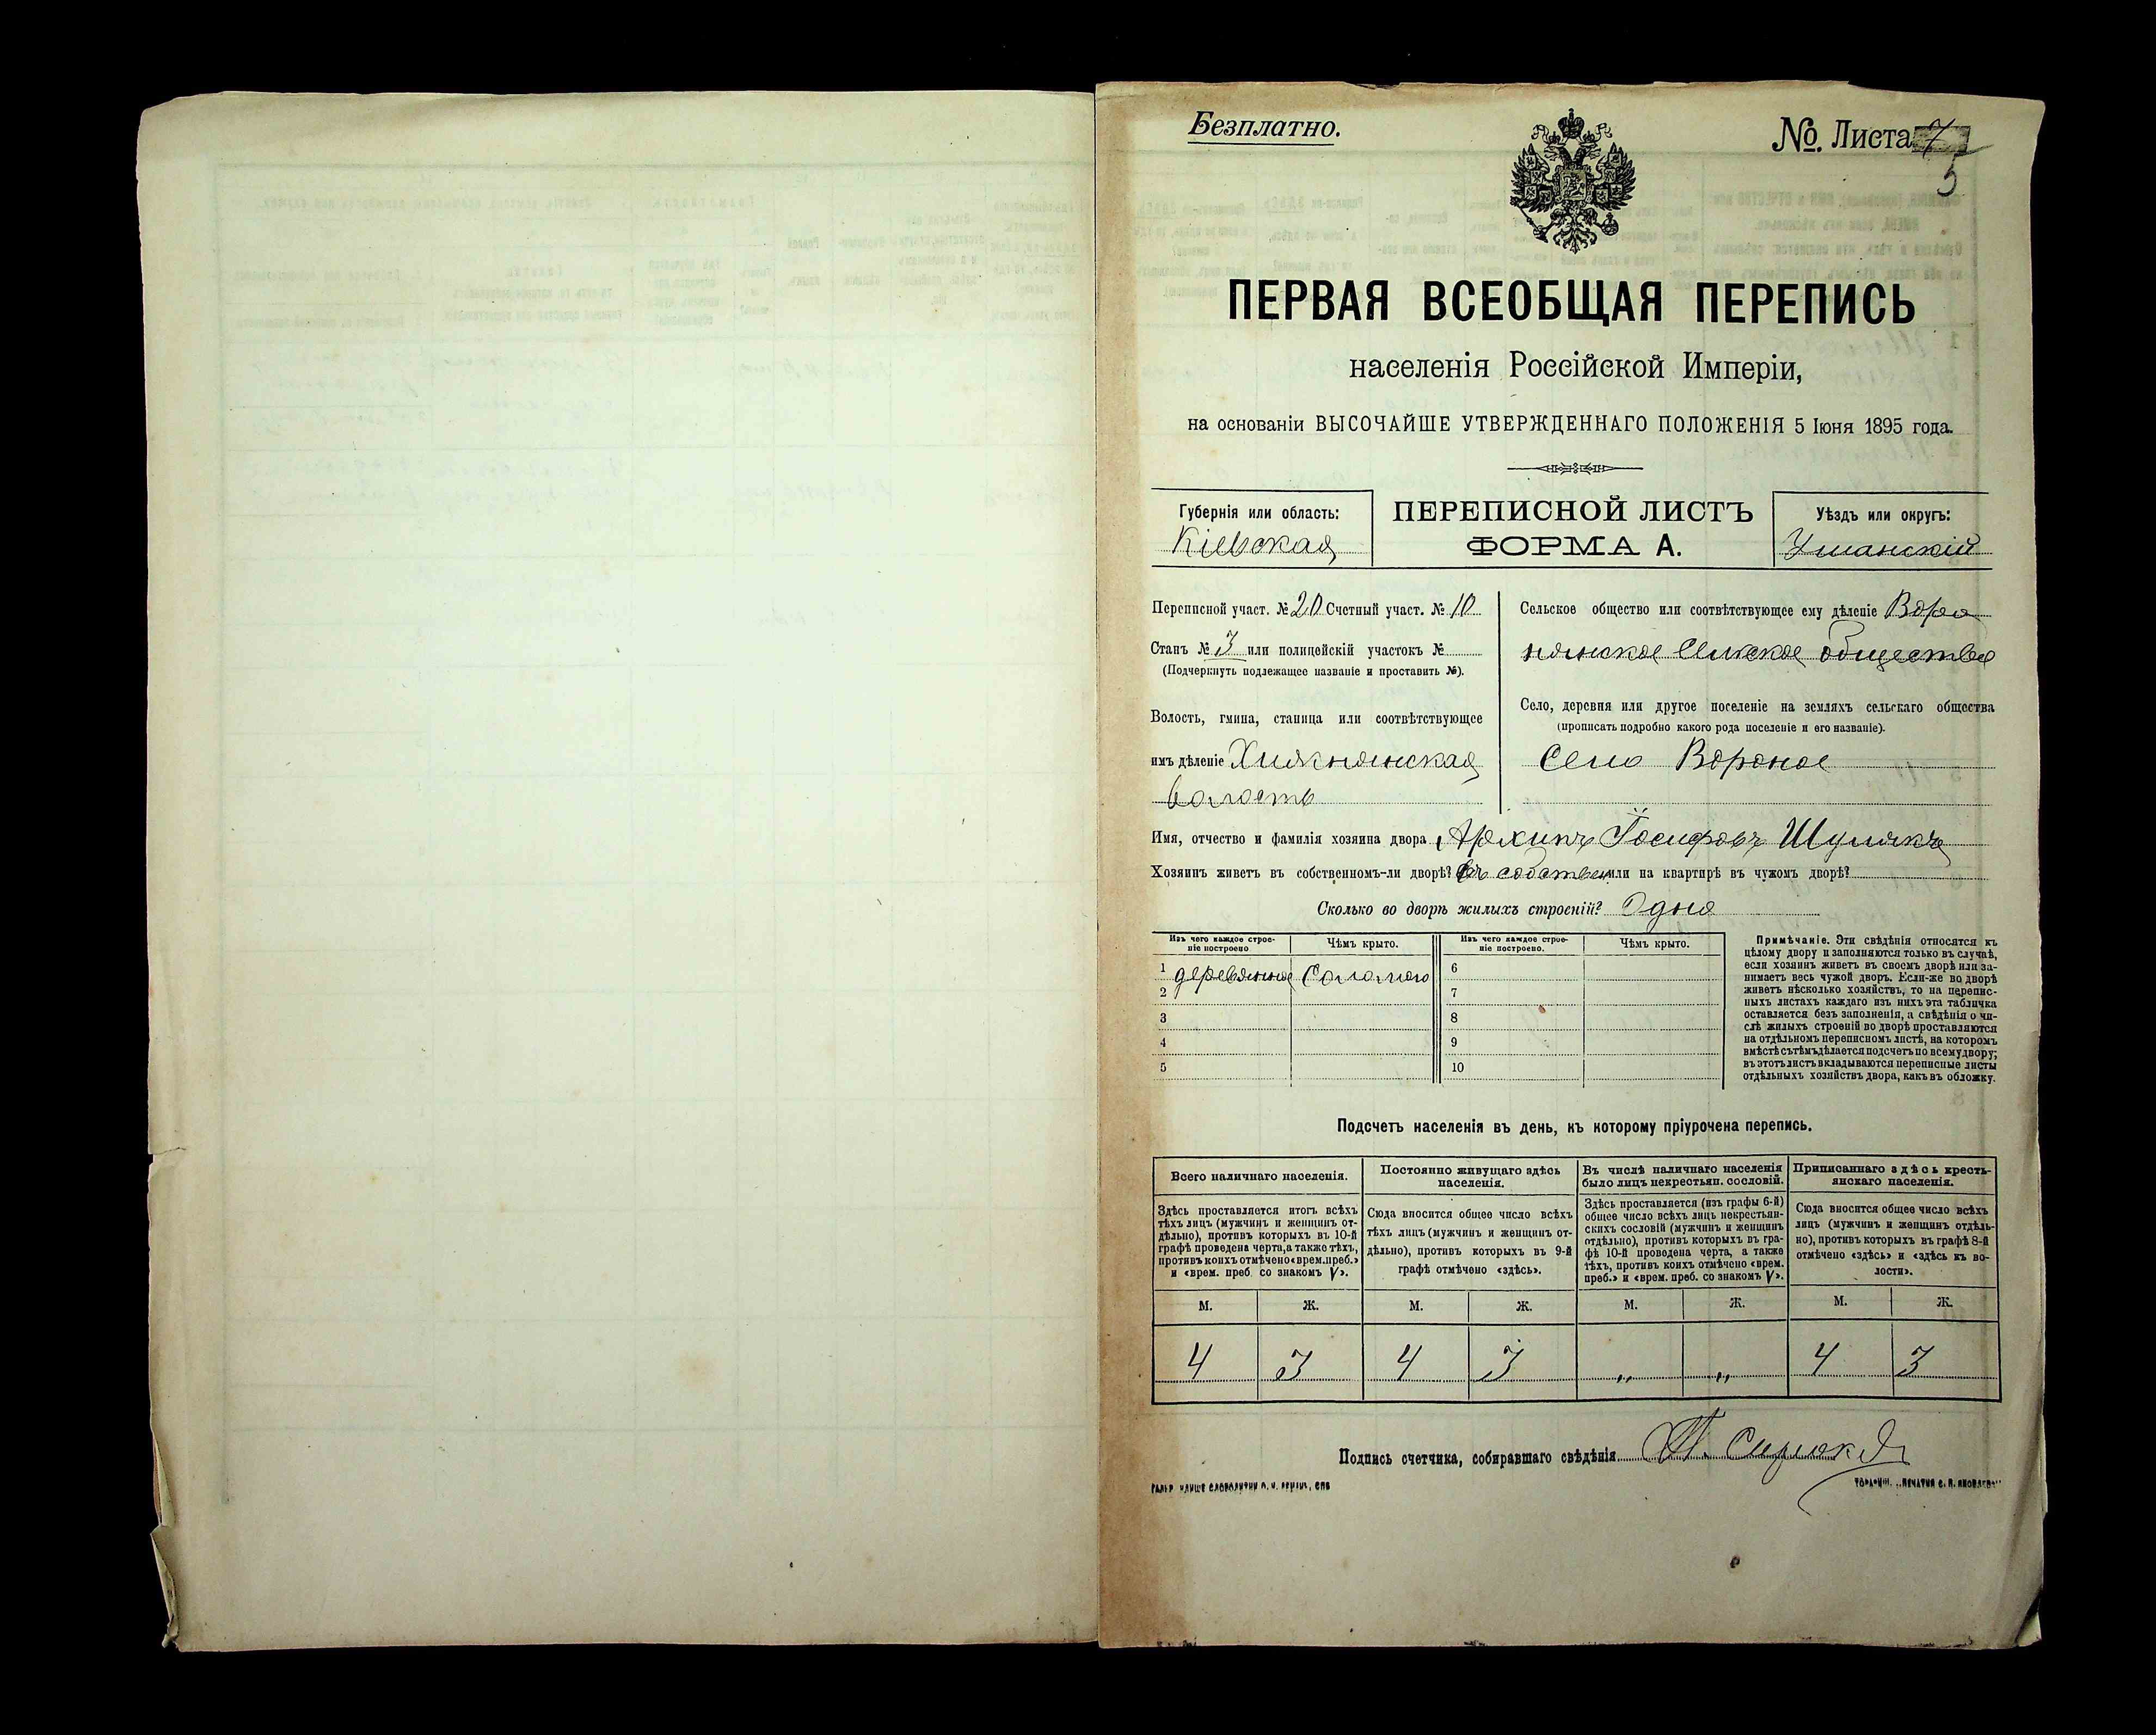 Безплатно.
№. Листа 7
5
ПЕРВАЯ ВСЕОБЩАЯ ПЕРЕПИСЬ
населенія Россійской Имперіи,
на основаніи ВЫСОЧАЙШЕ УТВЕРЖДЕННАГО ПОЛОЖЕНІЯ 5 Іюня 1895 года.
Губернія или область:
Кіевская
ПЕРЕПИСНОЙ ЛИСТЪ
ФОРМА А.
Уѣздъ или округъ:
Уманскій
Переписной участ. № 20 Счетный участ. № 10
Станъ № 3 или полицейскій участокъ №
(Подчеркнуть подлежащее названіе и проставить №).
Волость, гмина, станица или соотвѣтствующее
имъ дѣленіе Хижнянская
волость
Сельское общество или соотвѣтствующее ему дѣленіе Воро
нянское Сельское общество
Село, деревня или другое поселеніе на земляхъ сельскаго общества
(прописать подробно какого рода поселеніе и его названіе).
Село Вороное
Имя, отчество и фамилія хозяина двора Архипъ Іосифовъ Шулякъ
Хозяинъ живетъ въ собственномъ-ли дворѣ? въ собствен или на квартирѣ въ чужомъ дворѣ?
Сколько во дворѣ жилыхъ строеній? Одно
Изъ чего каждое строе-
ніе построено
Чѣмъ крыто.
Изъ чего каждое строе-
ніе построено.
Чѣмъ крыто.
1 деревянное Соломою
2
3
4
5
6
7
8
9
10
Примѣчаніе. Эти свѣдѣнія относятся къ
цѣлому двору и заполняются только въ случаѣ,
если хозяинъ живетъ въ своемъ дворѣ или за-
нимаетъ весь чужой дворъ. Если-же во дворѣ
живетъ нѣсколько хозяйствъ, то на перепис-
ныхъ листахъ каждаго изъ нихъ эта табличка
оставляется безъ заполненія, а свѣдѣнія о чи-
слѣ жилыхъ строеній во дворѣ проставляются
на отдѣльномъ переписномъ листѣ, на которомъ
вмѣстѣ съ тѣмъ дѣлается подсчетъ по всему двору;
въ этотъ листъ вкладываются переписные листы
отдѣльныхъ хозяйствъ двора, какъ въ обложку.
Подсчетъ населенія въ день, къ которому пріурочена перепись.
Всего наличнаго населенія.
Здѣсь проставляется итогъ всѣхъ
тѣхъ лицъ (мужчинъ и женщинъ от-
дѣльно), противъ которыхъ въ 10-й
графѣ проведена черта, а также тѣхъ,
противъ коихъ отмѣчено «врем. преб.»
и «врем. преб. со знакомъ V».
Постоянно живущаго здѣсь
населенія.
Сюда вносится общее число всѣхъ
тѣхъ лицъ (мужчинъ и женщинъ от-
дѣльно), противъ которыхъ въ 9-й
графѣ отмѣчено «здѣсь».
Въ числѣ наличнаго населенія
было лицъ некрестьян. сословій.
Здѣсь проставляется (изъ графы 6-й)
общее число всѣхъ лицъ некрестьян-
скихъ сословій (мужчинъ и женщинъ
отдѣльно), противъ которыхъ въ гра-
фѣ 10-й проведена черта, а также
тѣхъ, противъ коихъ отмѣчено «врем.
преб.» и «врем. преб. со знакомъ V».
Приписаннаго здѣсь кресть-
янскаго населенія.
Сюда вносится общее число всѣхъ
лицъ (мужчинъ и женщинъ отдѣль-
но), противъ которыхъ въ графѣ 8-й
отмѣчено «здѣсь» и «здѣсь къ во-
лости».
М. Ж. М. Ж. М. Ж. М. Ж.
4 3 4 3 „ „ 4 3
Подпись счетчика, собиравшаго свѣдѣнія